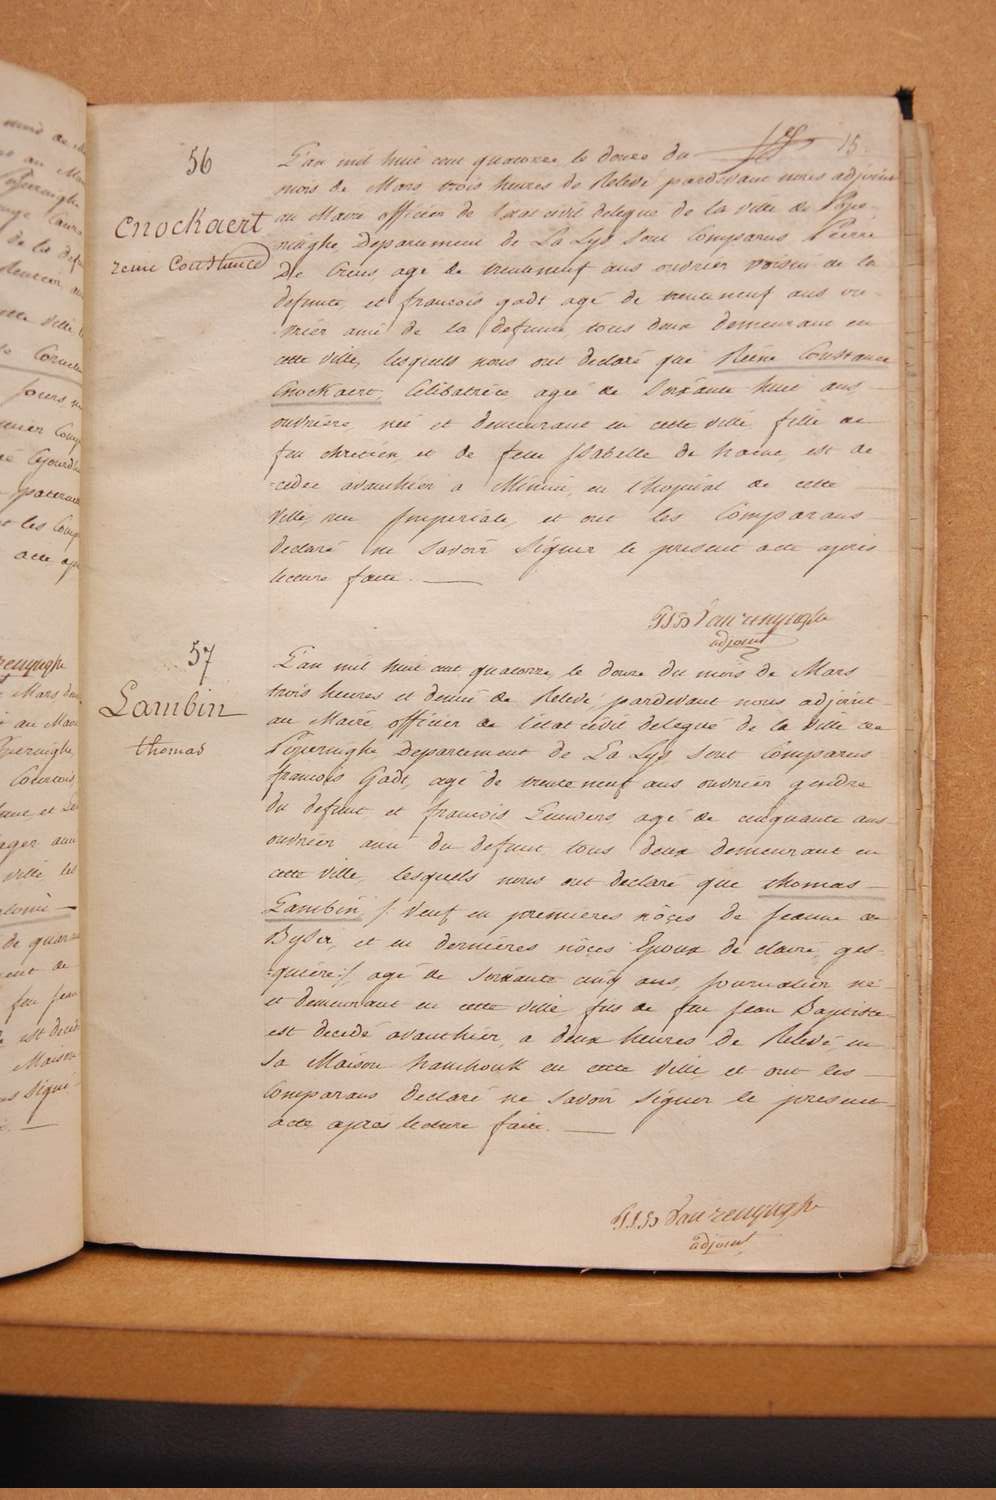 15
56
Cnockaert
reine Constance
L'an mil huit cent quatorze le douze du
mois de Mars trois heures de Relevé pardevant nous adjoint
au Maire officier de l'etat civil delegué de la ville de Pope-
ringhe, Departement de La Lys sont Comparus Pierre
De Creus, agé de trenteneuf ans ouvrier voisin de la
defunte, et francois gadt agé de trenteneuf ans ou-
vrier ami de la defunte, tous deux demeurant en
cette ville, lesquels nous ont declaré que Reine Constance
Cnockaert, Celibatrice agée de soixante huit ans
ouvrière, née et demeurant en cette ville fille de
feu chretien, et de feue Isabelle de haene, est de
cedée avanthier a Minuit, en l'hopital de cette
ville, rue Imperiale, et ont les Comparans
declaré ne savoir signer le present acte après
lecture faite.
Van renynghe
adjoint
57
Lambin
thomas
L'an mil huit cent quatorze, le douze du mois de Mars
trois heures et demie de Relevé, pardevant nous adjoint
au Maire officier de l'etat civil delegué de la ville de
Poperinghe Departement de La Lys sont Comparus
francois Gadt, agé de trenteneuf ans ouvrier gendre
du defunt et francois Leuwers, agé de cinquante ans
ouvrier ami du defunt tous deux demeurant en
cette ville, lesquels nous ont declaré que thomas
Lambin /: Veuf en premieres nôces de jeanne de
et en dernières nôces Epoux de claire ges-
quière:/ agé de soixante cinq ans, journalier né
et demeurant en cette ville fils de feu jean Baptiste
est decedé avanthier, a deux heures de Relevé, en
sa Maison en cette ville et ont les
Comparans declaré ne savoir signer le present
acte après lecture faite.
Van renynghe
adjoint